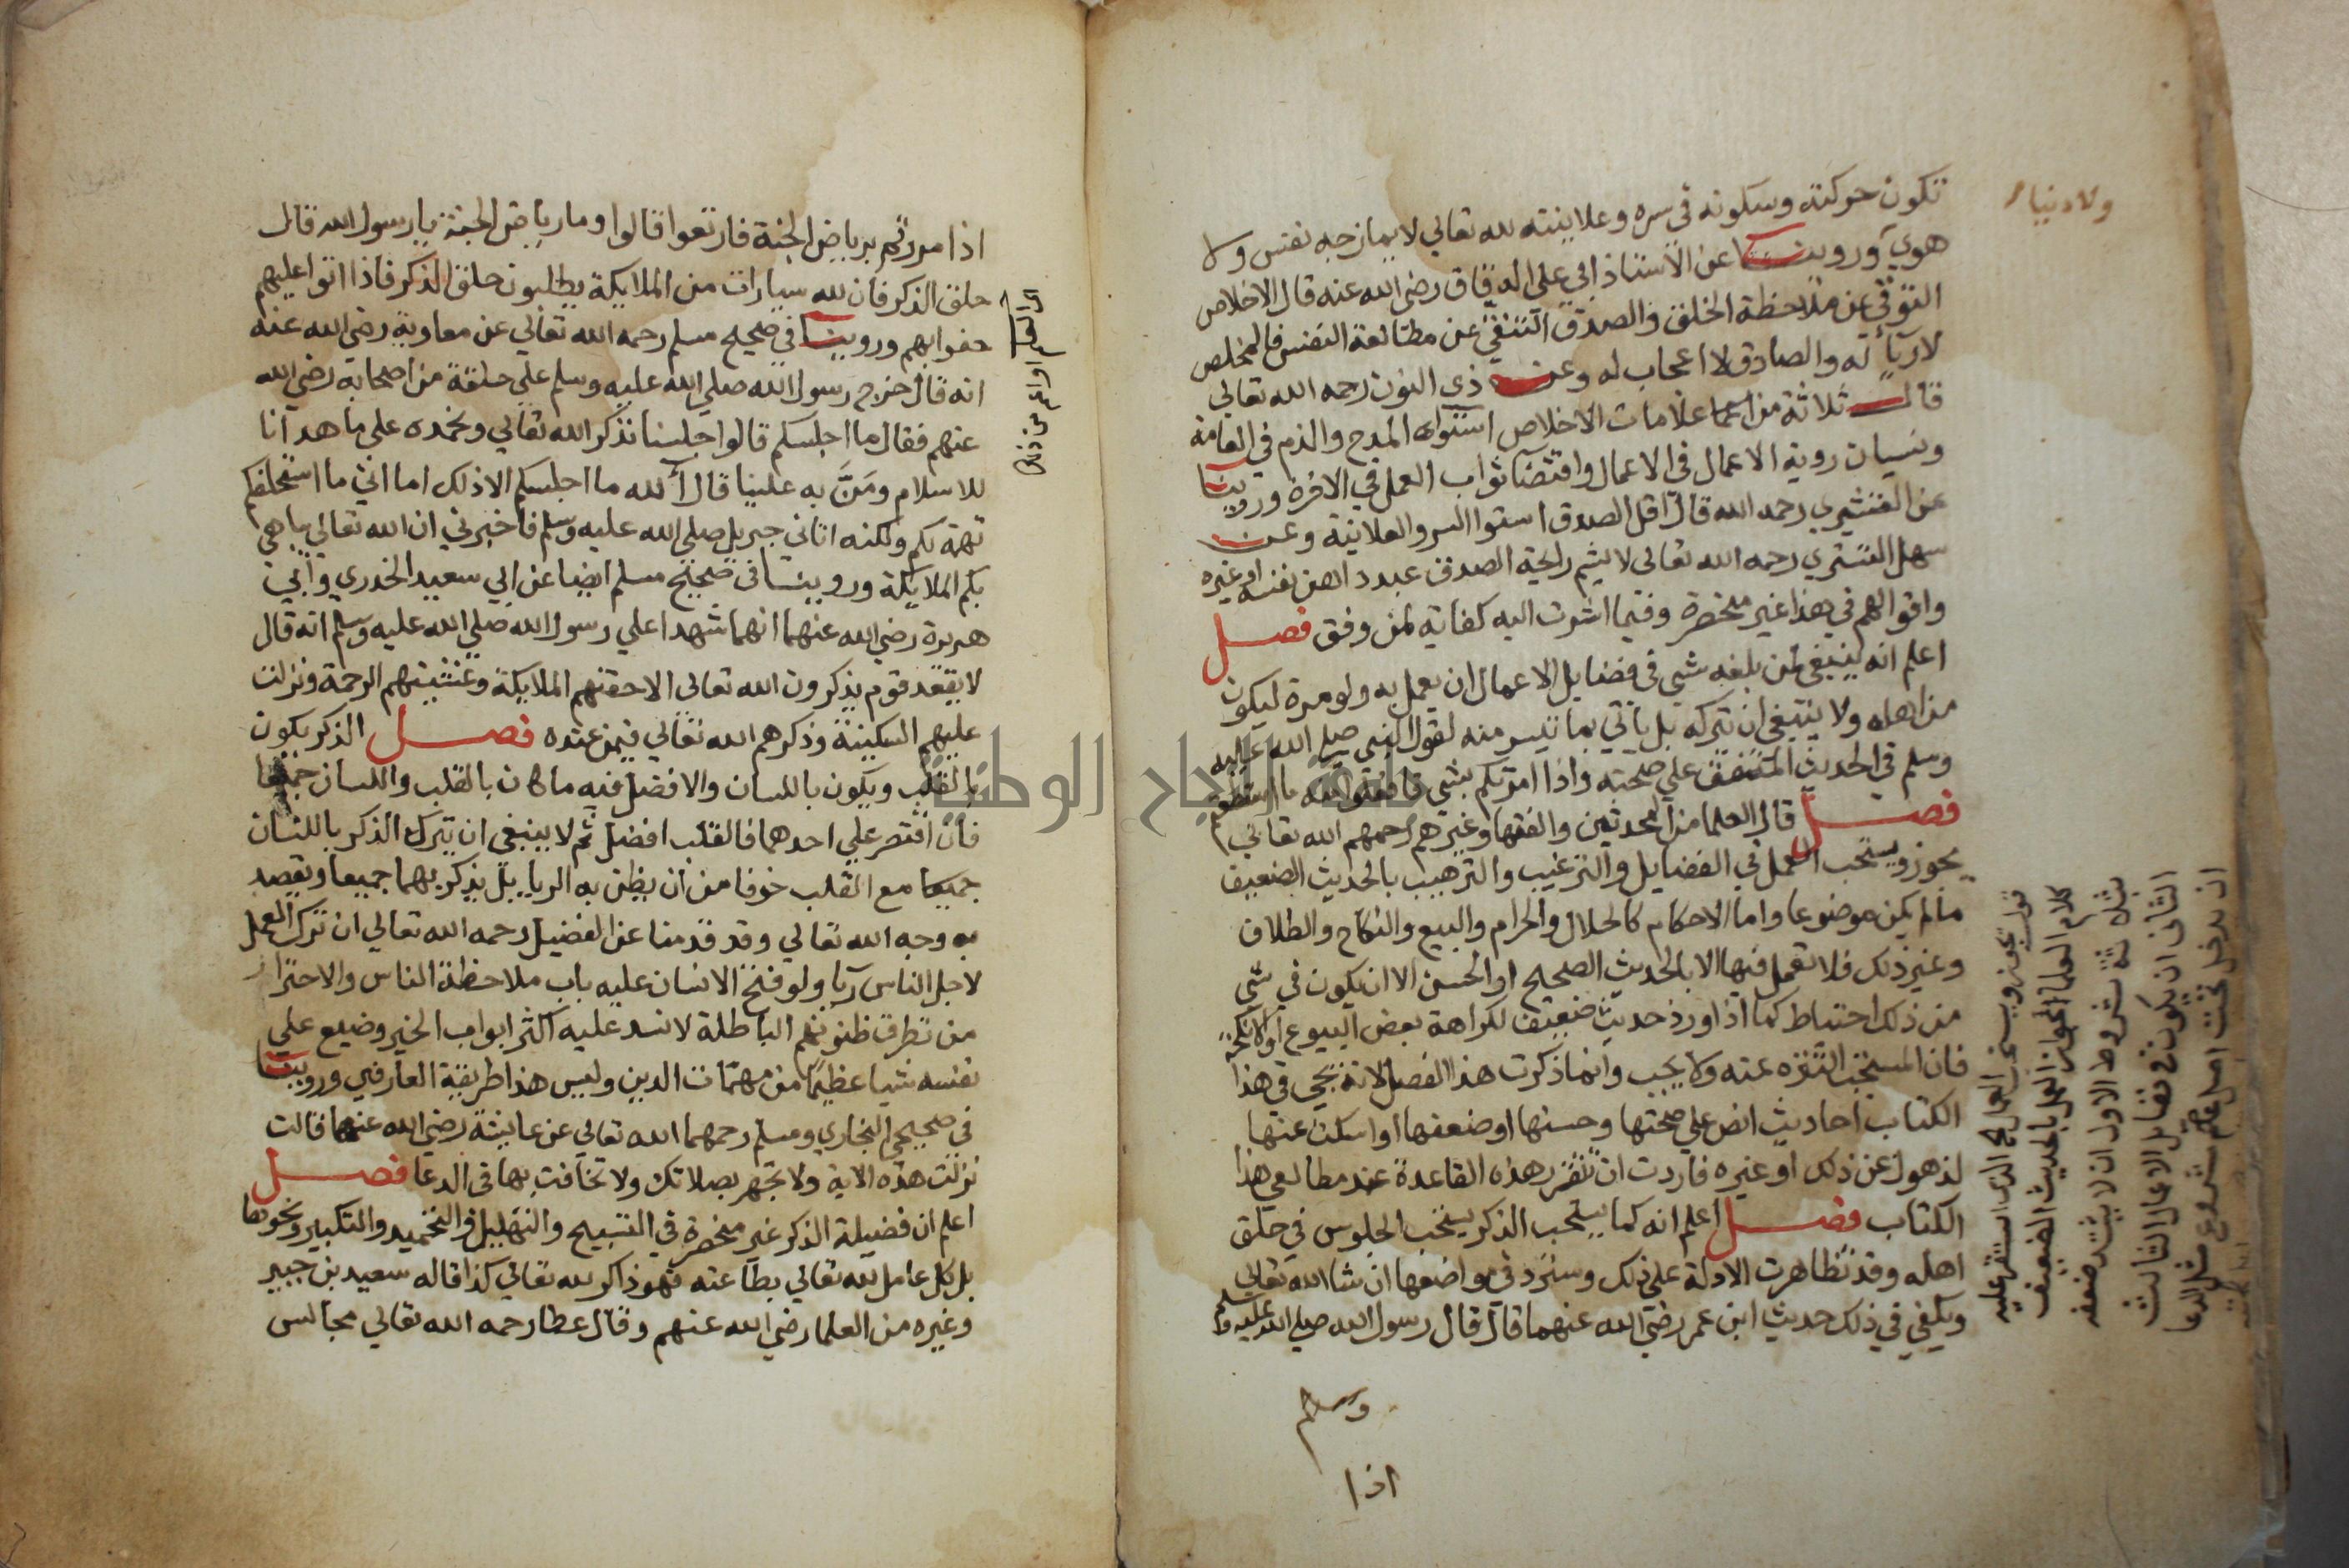 تكون حركته وسكونه في سره وعلانيته لله تعالي لا يمازجه نفس ولا
هوي وروينا عن الاستاذ ابي علي الدقاق رضي الله عنه قال الاخلاص
التوقي عن ملاحظة الخلق والصدق التنقي عن مطالعة النفس فالمخلص
لا رياء له والصادق لا اعجاب له وعن ذي النون رحمه الله تعالي
قال ثلاثة من علامات الاخلاص استواء المدح والذم في العامة
ونسيان روية الاعمال في الاعمال واقتضا ثواب العمل في الاخرة وروينا
عن القشيري رحمه الله قال اقل الصدق استوا السر والعلانية وعن
سهل التستري رحمه الله تعالي لا يشم رايحة الصدق عبد داهن نفسه او غيره
واقوالهم في هذا غير منحصرة وفيما اشرت اليه كفاية لمن وفق فصل
اعلم انه ينبغي لمن بلغه شي في فضايل الاعمال ان يعمل به ولو مرة ليكون
من اهله ولا ينبغي ان يتركه بل ياتي بما تيسر منه لقول النبي صلي الله عليه
وسلم في الحديث المتفق علي صحته واذا امرتكم بشي فافعلوا منه ما استطعتم
فصل قال العلما من المحدثين والفقها وغيرهم رحمهم الله تعالي
يجوز ويستحب العمل في الفضايل والترغيب والترهيب بالحديث الضعيف
مالم يكن موضوعا واما الاحكام كالحلال والحرام والبيع والنكاح والطلاق
وغير ذلك فلا تعمل فيها الا بالحديث الصحيح او الحسن الا ان يكون في شي
من ذلك احتياط كما اذا ورد حديث ضعيف لكراهة بعض البيوع او الانكحة
فان المستحب التنزه عنه ولا يجب وانما ذكرت هذا الفصل لانه يجي في هذا
الكتاب احاديث انص علي صحتها وحسنها او ضعفها او اسكت عنها
لذهول عن ذلك او غيره فاردت ان تتقرر هذه القاعدة عند مطالعي هذا
الكتاب فصل اعلم انه كما يستحب الذكر يستحب الجلوس في حلق
اهله وقد تظاهرت الادلة علي ذلك وسترد في مواضعها ان شا الله تعالي
ويكفي في ذلك حديث ابن عمر رضي الله عنهما قال قال رسول الله صلي الله عليه
وسلم
اذا
قول يجوز ويستحب العمل الذي استقر عليه
كلام العلما الجواز العمل بالحديث الضعيف
بثلثة شروط الاول ان لا يشتد ضعفه
الثاني ان يكون في فضايل الاعمال الثالث
ان يدخل تحت اصل عام مشروع
اذا مررتم برياض الجنة فارتعوا قالوا وما رياض الجنة يا رسول الله قال
حلق الذكر فان لله سيارات من الملايكة يطلبون حلق الذكر فاذا اتوا عليهم
حفوا بهم وروينا في صحيح مسلم رحمه الله تعالي عن معاوية رضي الله عنه
انه قال خرج رسول الله صلي الله عليه وسلم علي حلقة من اصحابه رضي الله
عنهم فقال ما اجلسكم قالوا جلسنا نذكر الله تعالي ونحمده علي ما هدانا
للاسلام ومَنَّ به علينا قال آلله ما اجلسكم الا ذلك اما اني ما استحلفكم
تهمة لكم ولكنه اتاني جبريل صلي الله عليه وسلم فاخبرني ان الله تعالي يباهي
بكم الملايكة وروينا في صحيح مسلم ايضا عن ابي سعيد الخدري وابي
هريرة رضي الله عنهما انهما شهدا علي رسول الله صلي الله عليه وسلم انه قال
لا يقعد قوم يذكرون الله تعالي الا حفتهم الملايكة وغشيتهم الرحمة ونزلت
عليهم السكينة وذكرهم الله تعالي فيمن عنده فصل الذكر يكون
بالقلب ويكون باللسان والافضل فيه ما كان بالقلب واللسان جميعا
فان اقتصر علي احدهما فالقلب افضل ثم لا ينبغي ان يترك الذكر باللسان
جميعا مع القلب خوفا من ان يظن به الريا بل يذكر بهما جميعا ويقصد
به وجه الله تعالي وقد قدمنا عن الفضيل رحمه الله تعالي ان ترك العمل
لاجل الناس ريا ولو فتح الانسان عليه باب ملاحظة الناس والاحتراز
من تطرق ظنونهم الباطلة لانسد عليه اكثر ابواب الخير وضيع علي
نفسه شيا عظيما من مهمات الدين وليس هذا طريقة العارفين وروينا
في صحيحي البخاري ومسلم رحمهما الله تعالي عن عايشة رضي الله عنها قالت
نزلت هذه الاية ولا تجهر بصلاتك ولا تخافت بها في الدعا فصل
اعلم ان فضيلة الذكر غير منحصرة في التسبيح والتهليل والتحميد والتكبير ونحوها
بل كل عامل لله تعالي بطاعته فهو ذاكر لله تعالي كذا قاله سعيد بن جبير
وغيره من العلما رضي الله عنهم وقال عطا رحمه الله تعالي مجالس